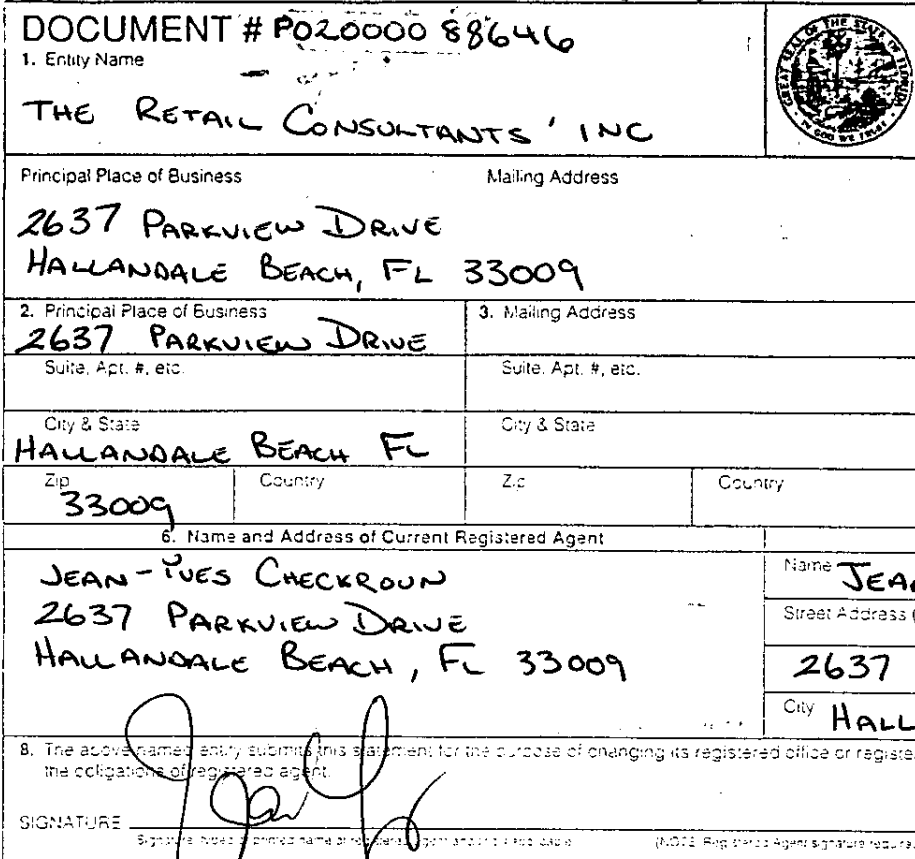 DOCUMENT # P02000088646
1. Entity Name
THE RETAIL CONSULTANTS' INC
GREAT SEAL OF THE STATE OF FLORIDA
IN GOD WE TRUST
Principal Place of Business Mailing Address
2637 PARKVIEW DRIVE
HALLANDALE BEACH, FL 33009
2. Principal Place of Business 3. Mailing Address
2637 PARKVIEW DRIVE
Suite, Apt. #, etc. Suite, Apt. #, etc.
City & State City & State
HALLANDALE BEACH FL
Zip Country Zip Country
33009
6. Name and Address of Current Registered Agent
JEAN-YVES CHECKROUN
2637 PARKVIEW DRIVE
HALLANDALE BEACH, FL 33009
Name JEAN
Street Address (
2637
City HALL
8. The above named entity submits this statement for the purpose of changing its registered office or registe
the obligations of registered agent.
SIGNATURE
Signature, typed or printed name of registered agent and title if applicable (NOTE: Registered Agent signature require